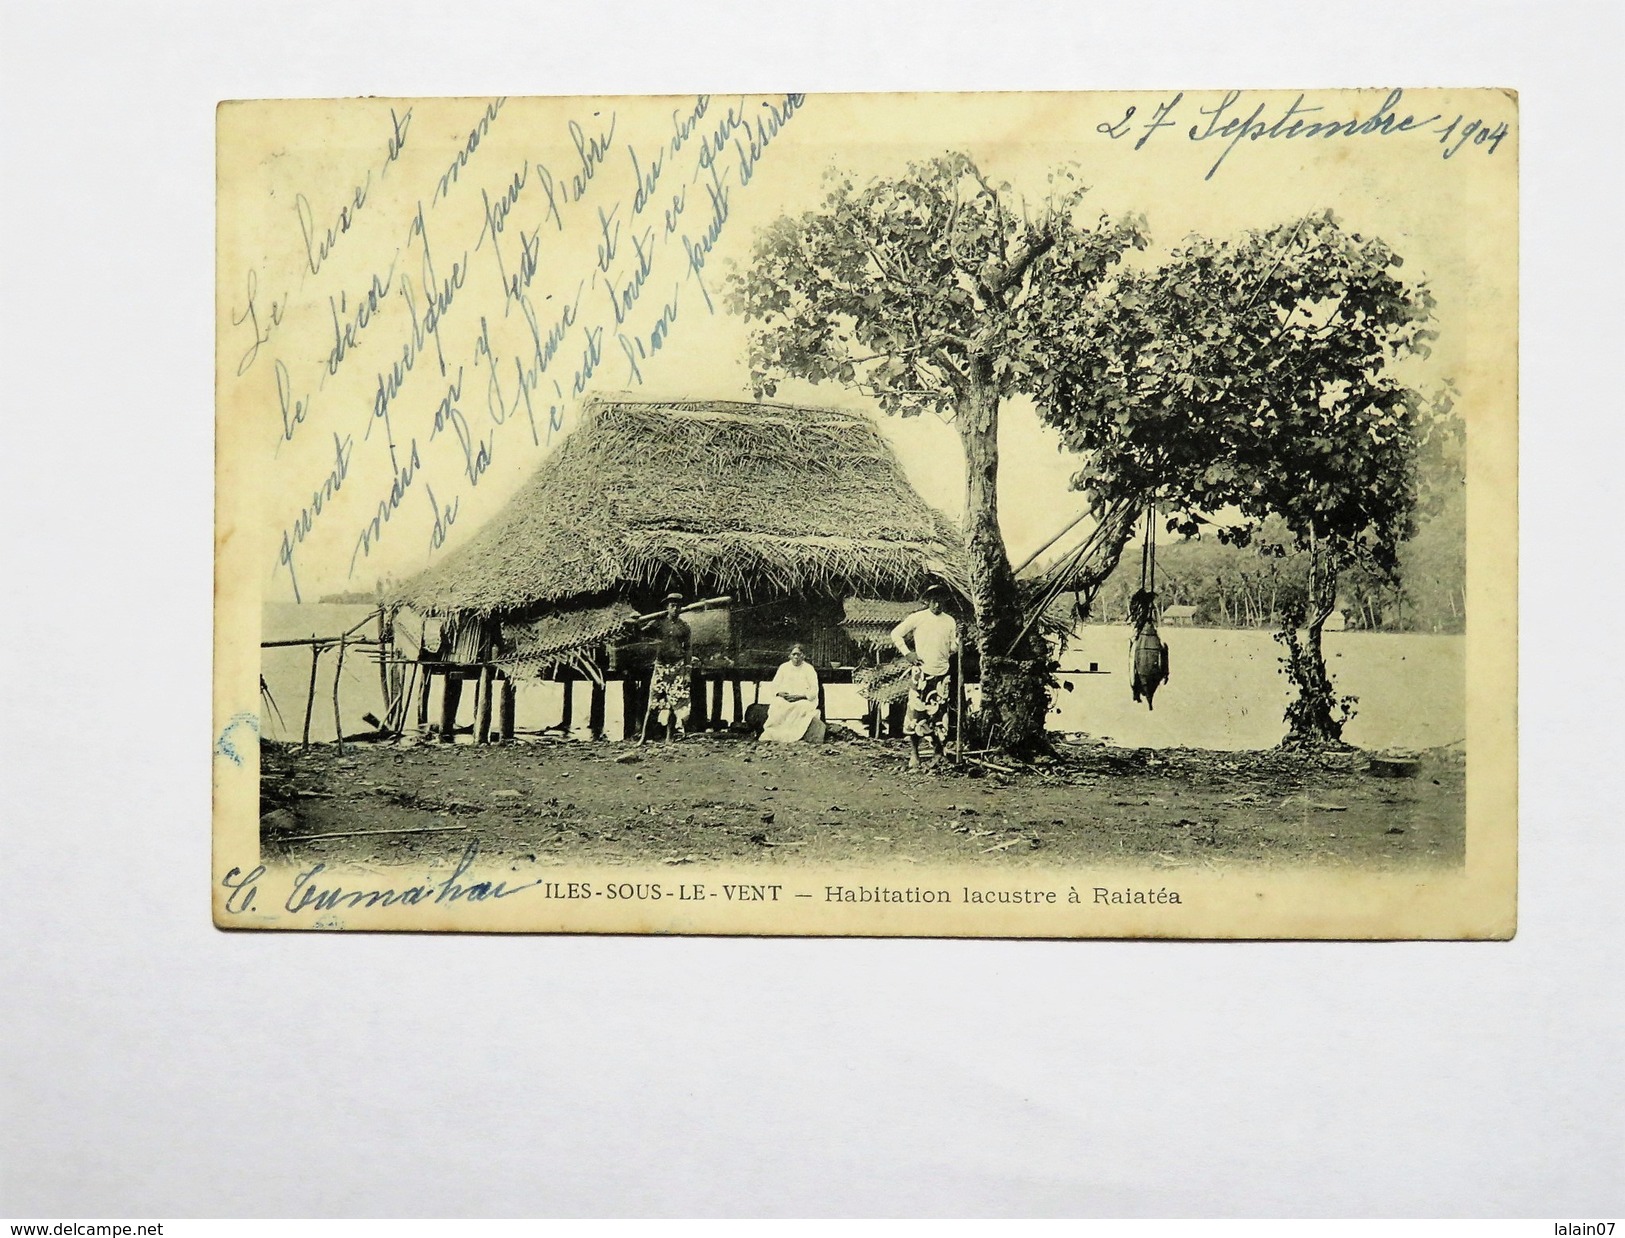 27 Septembre 1904
Le luxe et
le décor y man
quent quelque peu
mais on y est à l'abri
de la pluie et du vent
c'est tout ce que
l'on peut désirer
C. Tumahai
ILES-SOUS-LE-VENT — Habitation lacustre à Raiatéa
www.delcampe.net
lalain07